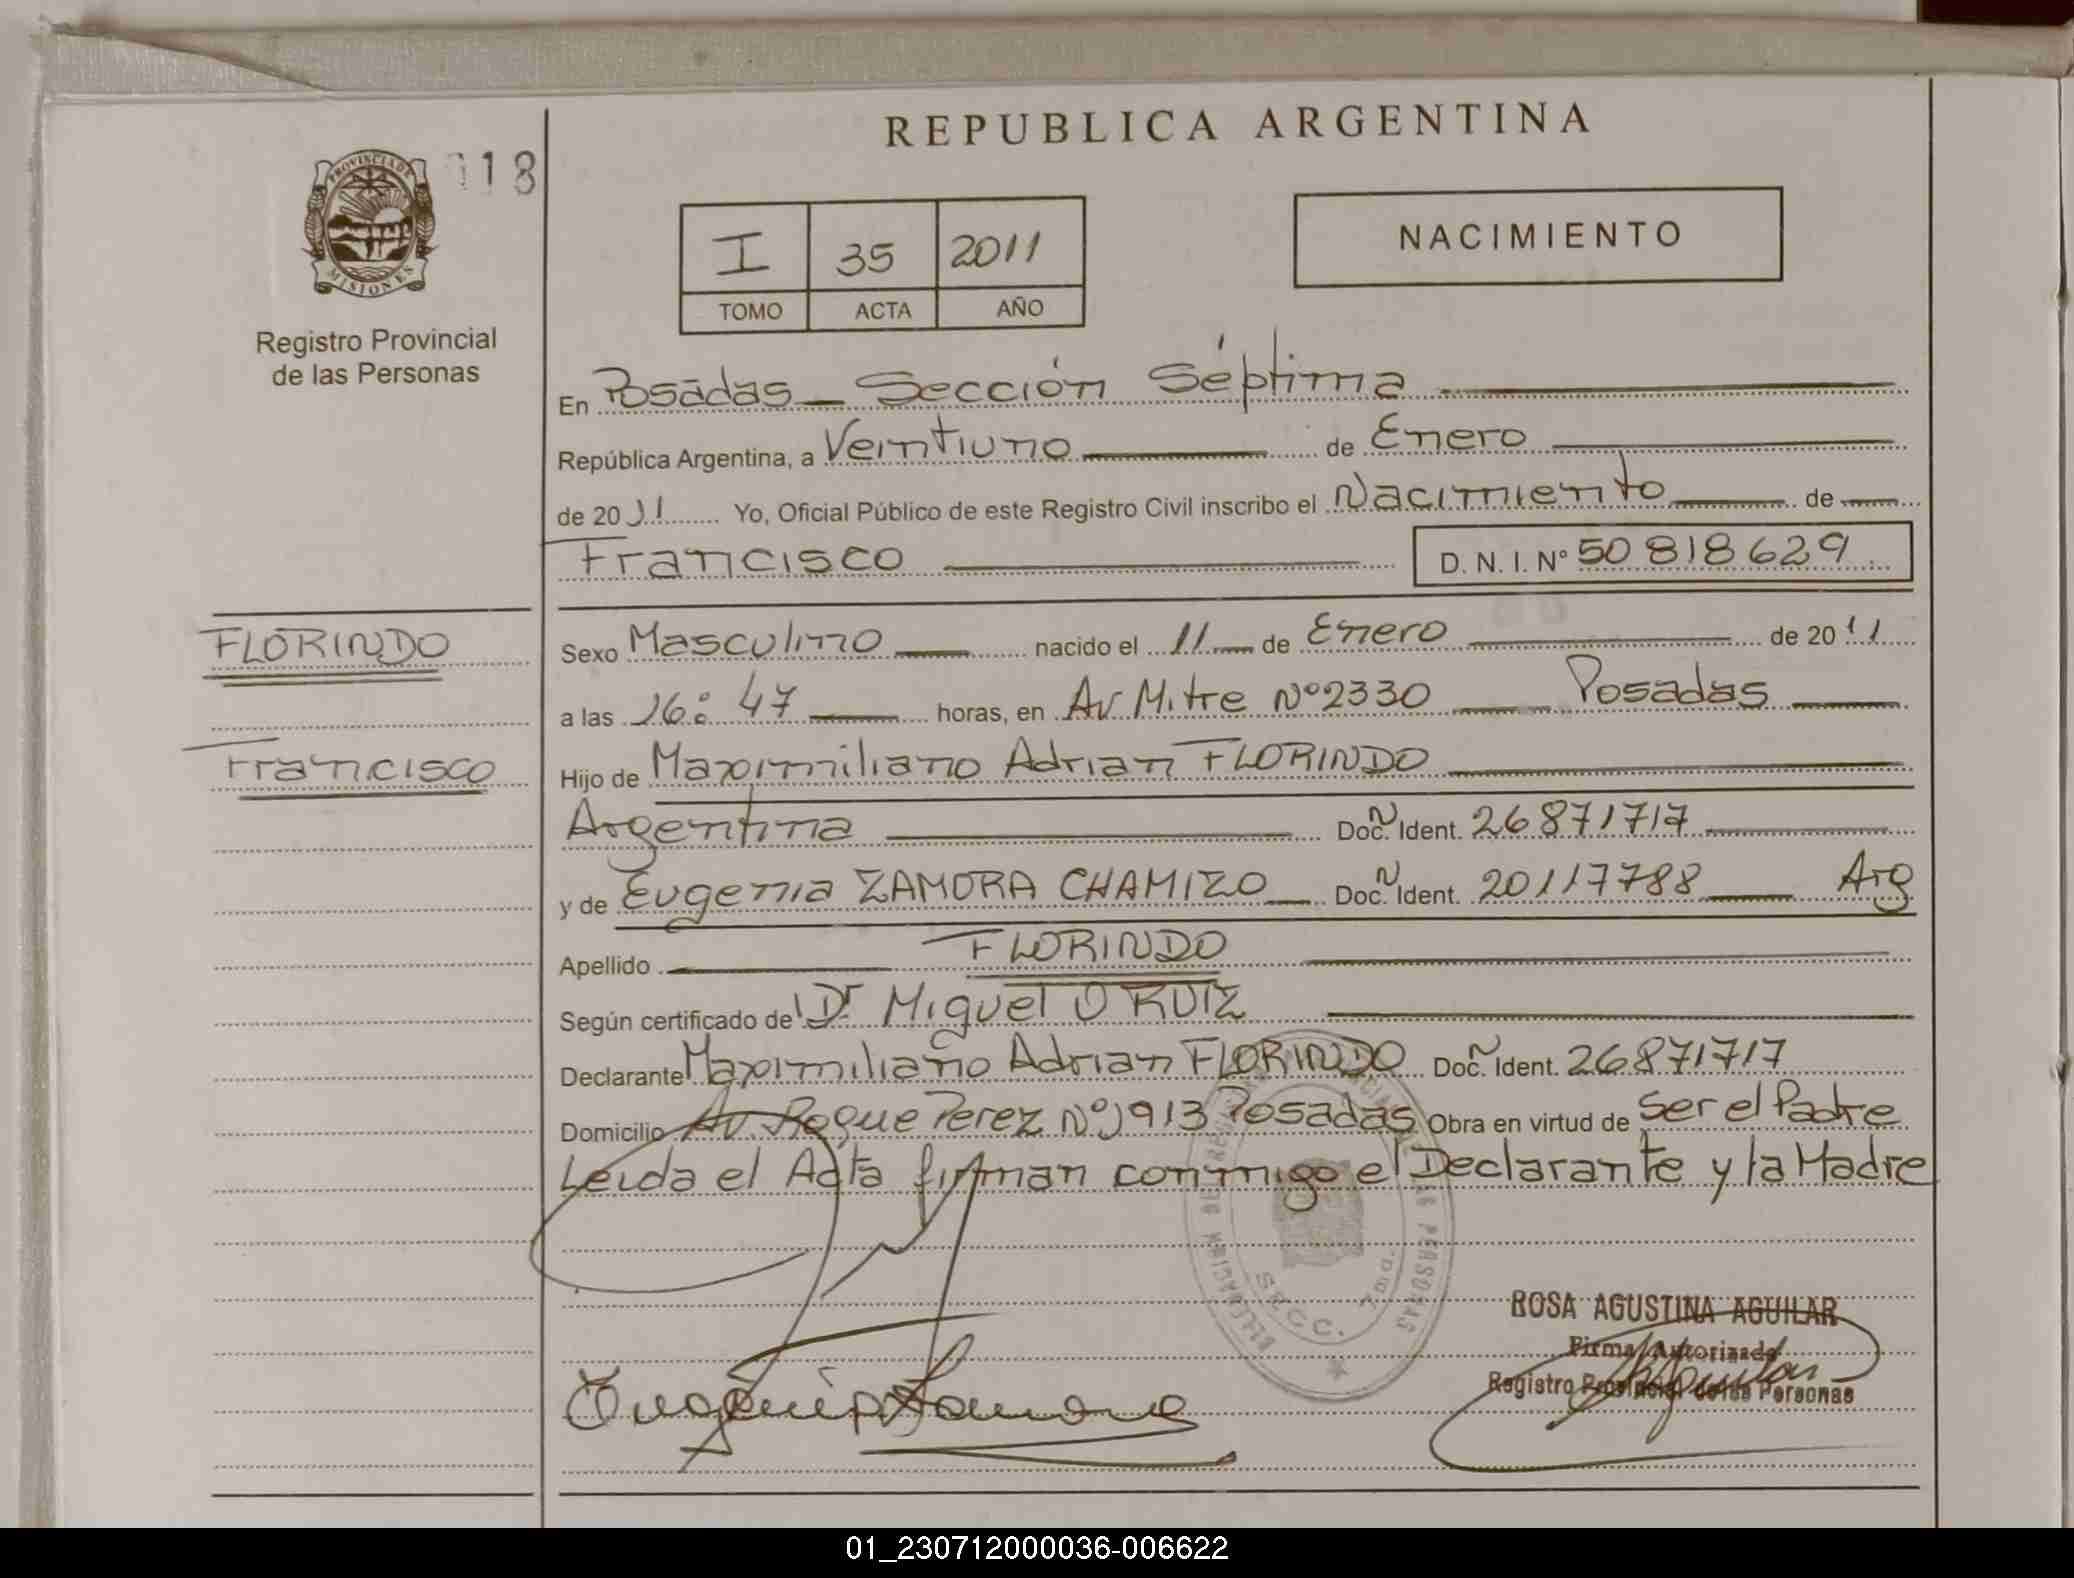 REPUBLICA ARGENTINA
118
PROVINCIA DE MISIONES
Registro Provincial
de las Personas
I 35 2011
TOMO ACTA AÑO
NACIMIENTO
En Posadas - Sección Séptima
República Argentina, a Veintiuno de Enero
de 2011 Yo, Oficial Público de este Registro Civil inscribo el Nacimiento de
Francisco D. N. I. Nº 50 818 629
FLORINDO
Francisco
Sexo Masculino nacido el 11 de Enero de 2011
a las 16:47 horas, en Av Mitre Nº 2330 Posadas
Hijo de Maximiliano Adrian FLORINDO
Argentina Doc. Ident. 26871717
y de Eugenia ZAMORA CHAMIZO Doc. Ident. 20117788 Arg
Apellido FLORINDO
Según certificado de Dr Miguel O RUIZ
Declarante Maximiliano Adrian FLORINDO Doc. Ident. 26871717
Domicilio Av. Roque Perez Nº 1913 Posadas Obra en virtud de Ser el Padre
Leida el Acta firman conmigo el Declarante y la Madre
SECC. 7ma.
Eugenia Zamora
ROSA AGUSTINA AGUILAR
Firma Autorizada
Registro Provincial de las Personas
01_230712000036-006622